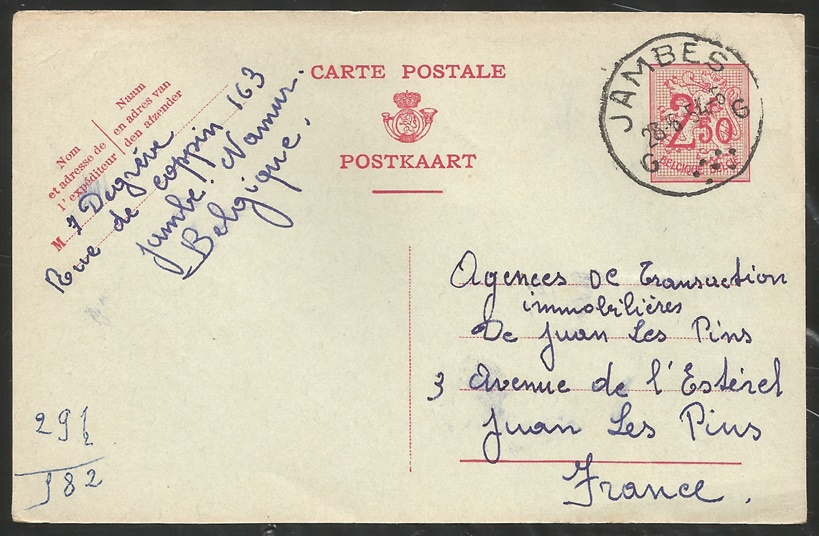 CARTE POSTALE
POSTKAART
Nom
et adresse de
l'expéditeur
Naam
en adres van
den afzender
M. J Degrève
Rue de coppin 163
Jambe. Namur.
Belgique.
JAMBES
G G
2
50
BELGIQUE
Agences De Transaction
immobilières
De Juan Les Pins
3 Avenue de l'Estérel
Juan Les Pins
France.
291
2
582